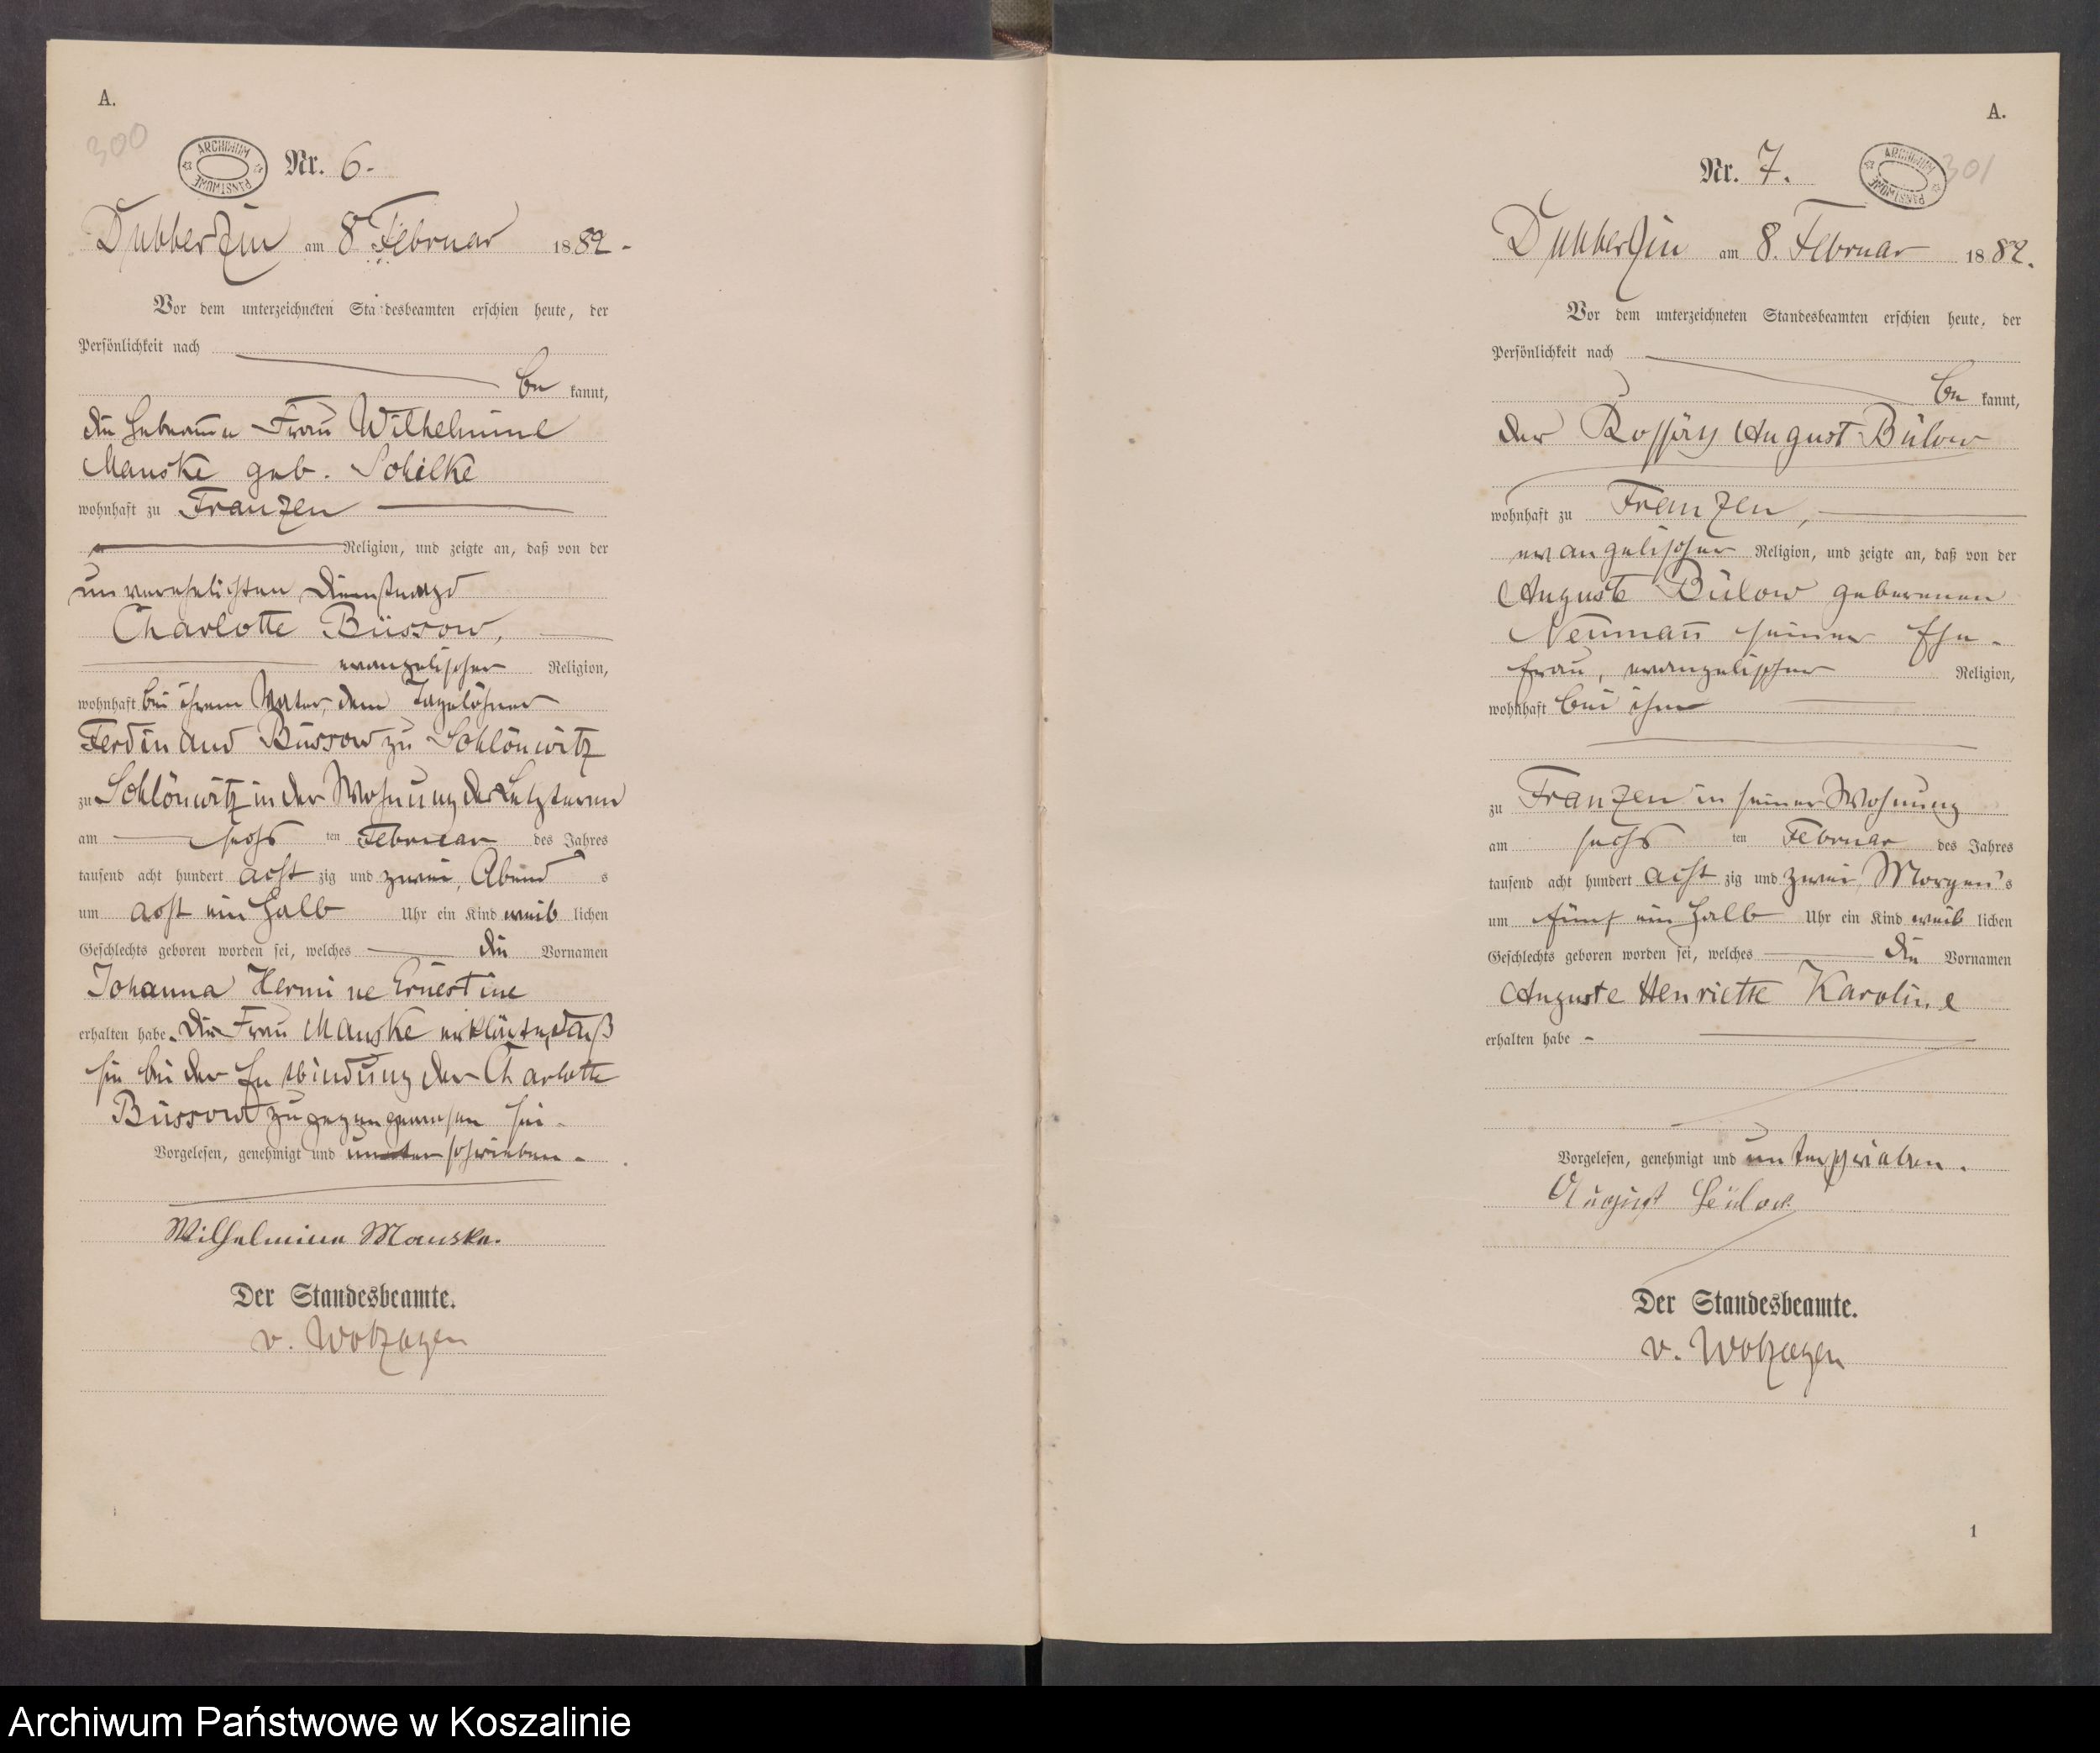 A.
300
ARCHIWUM PAŃSTWOWE
Nr. 6.
Dubberzin am 8 Februar 1882.
Vor dem unterzeichneten Standesbeamten erschien heute, der
Persönlichkeit nach
be kannt,
die Hebeamme Frau Wilhelmine
Manske geb. Schilke
wohnhaft zu Franzen
Religion, und zeigte an, daß von der
unverehelichten Dienstmagd
Charlotte Büssow,
evangelischer Religion,
wohnhaft bei ihrem Vater, dem Tagelöhner
Ferdinand Büssow zu Schlönwitz
zu Schlönwitz in der Wohnung des Letzteren
am sechs ten Februar des Jahres
tausend acht hundert acht zig und zwei, Abend s
um acht ein halb Uhr ein Kind weib lichen
Geschlechts geboren worden sei, welches die Vornamen
Johanna Hermine Ernestine
erhalten habe. Die Frau Manske erklärte, daß
sie bei der Entbindung der Charlotte
Büssow zugegen gewesen sei.
Vorgelesen, genehmigt und unterschrieben.
Wilhelmine Manske.
Der Standesbeamte.
v. Wolzogen
A.
301
ARCHIWUM PAŃSTWOWE
Nr. 7.
Dubberzin am 8. Februar 1882.
Vor dem unterzeichneten Standesbeamten erschien heute, der
Persönlichkeit nach
be kannt,
der Kossäth August Bülow
wohnhaft zu Franzen,
evangelischer Religion, und zeigte an, daß von der
Auguste Bülow geborenen
Neumann seiner Ehe-
frau, evangelischer Religion,
wohnhaft bei ihm
zu Franzen in seiner Wohnung
am sechs ten Februar des Jahres
tausend acht hundert acht zig und zwei, Morgen's
um fünf ein halb Uhr ein Kind weib lichen
Geschlechts geboren worden sei, welches die Vornamen
Auguste Henriette Karoline
erhalten habe -
Vorgelesen, genehmigt und unterschrieben.
August Bülow
Der Standesbeamte.
v. Wolzogen
1
Archiwum Państwowe w Koszalinie